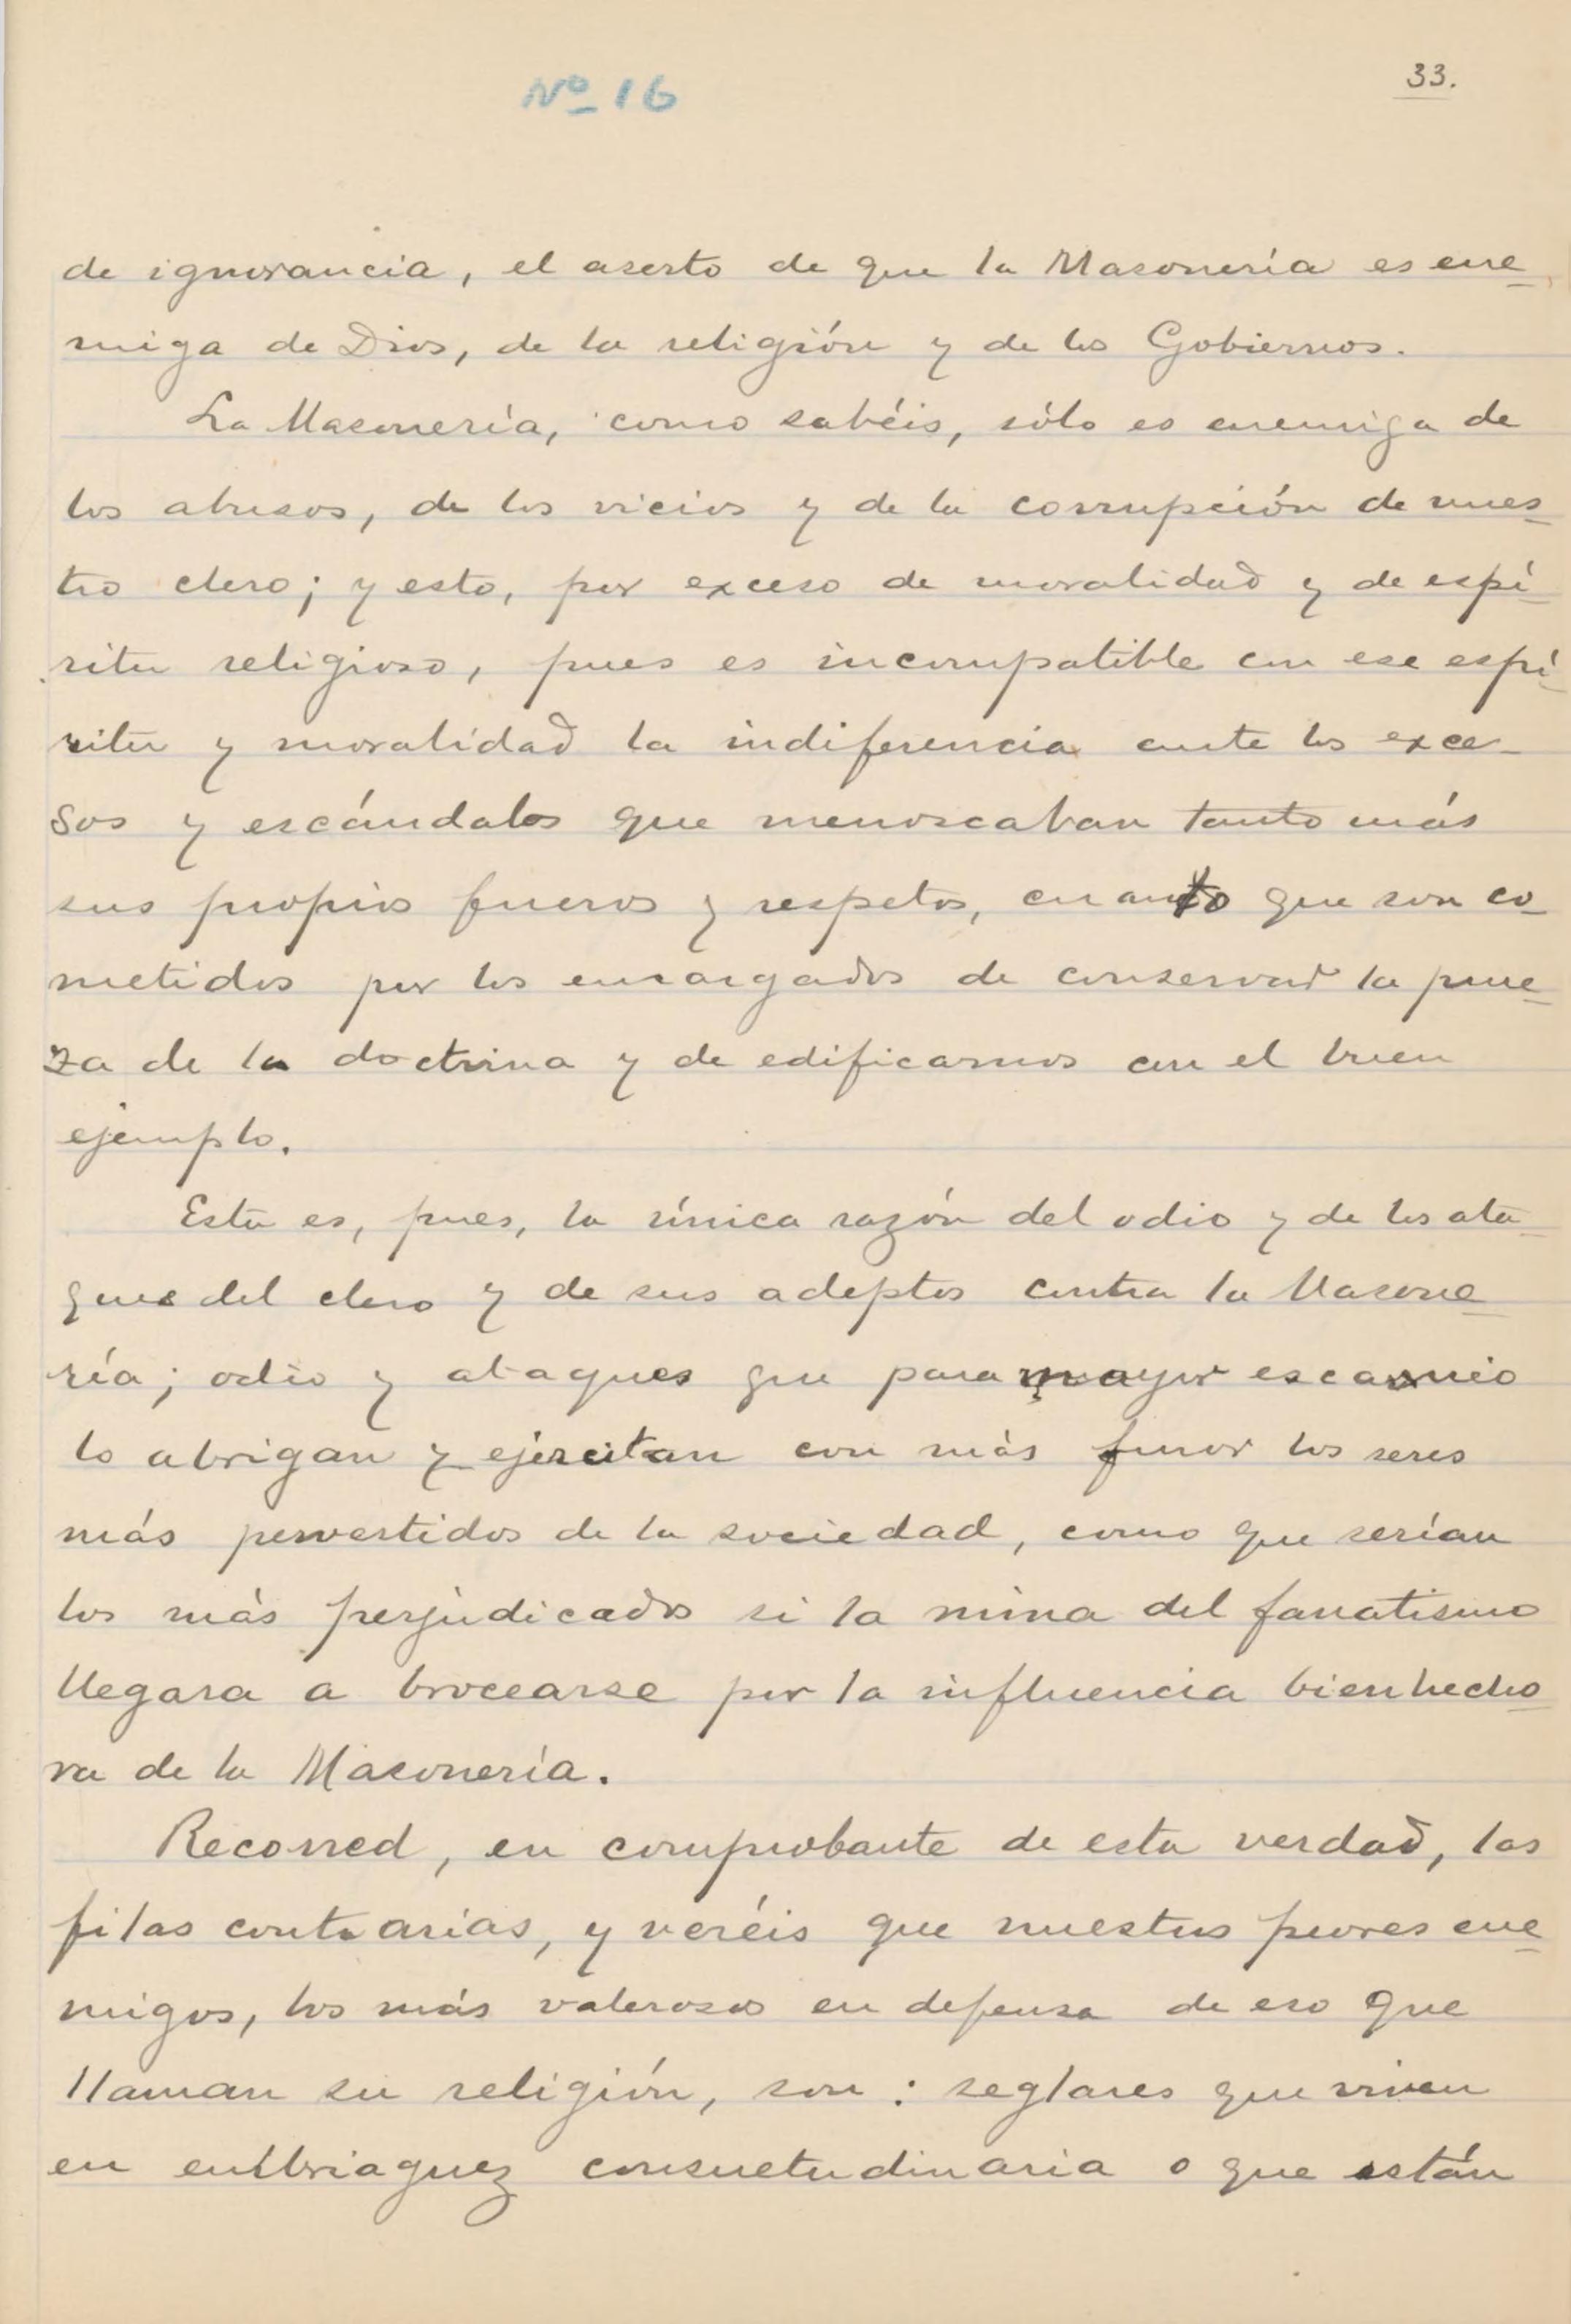 Nº 16
33.
de ignorancia, el aserto de que la Masonería es ene-
miga de Dios, de la religión y de los Gobiernos.
La Masonería, como sabéis, sólo es enemiga de
los abusos, de los vicios y de la corrupción de nues-
tro clero; y esto, por exceso de moralidad y de espí-
ritu religioso, pues es incompatible con ese espí-
ritu y moralidad la indiferencia ante los exce-
sos y escándalos que menoscaban tanto más
sus propios fueros y respetos, cuanto que son co-
metidos por los encargados de conservar la pure-
za de la doctrina y de edificarnos con el buen
ejemplo.
Esta es, pues, la única razón del odio y de los ata-
ques del clero y de sus adeptos contra la Masone-
ría; odio y ataques que para mayor escarnio
lo abrigan y ejercitan con más furor los seres
más pervertidos de la sociedad, como que serían
los más perjudicados si la mina del fanatismo
llegara a brocearse por la influencia bienhecho-
ra de la Masonería.
Recorred, en comprobante de esta verdad, las
filas contrarias, y veréis que nuestros peores ene-
migos, los más valerosos en defensa de eso que
llaman su religión, son: seglares que viven
en embriaguez consuetudinaria o que están